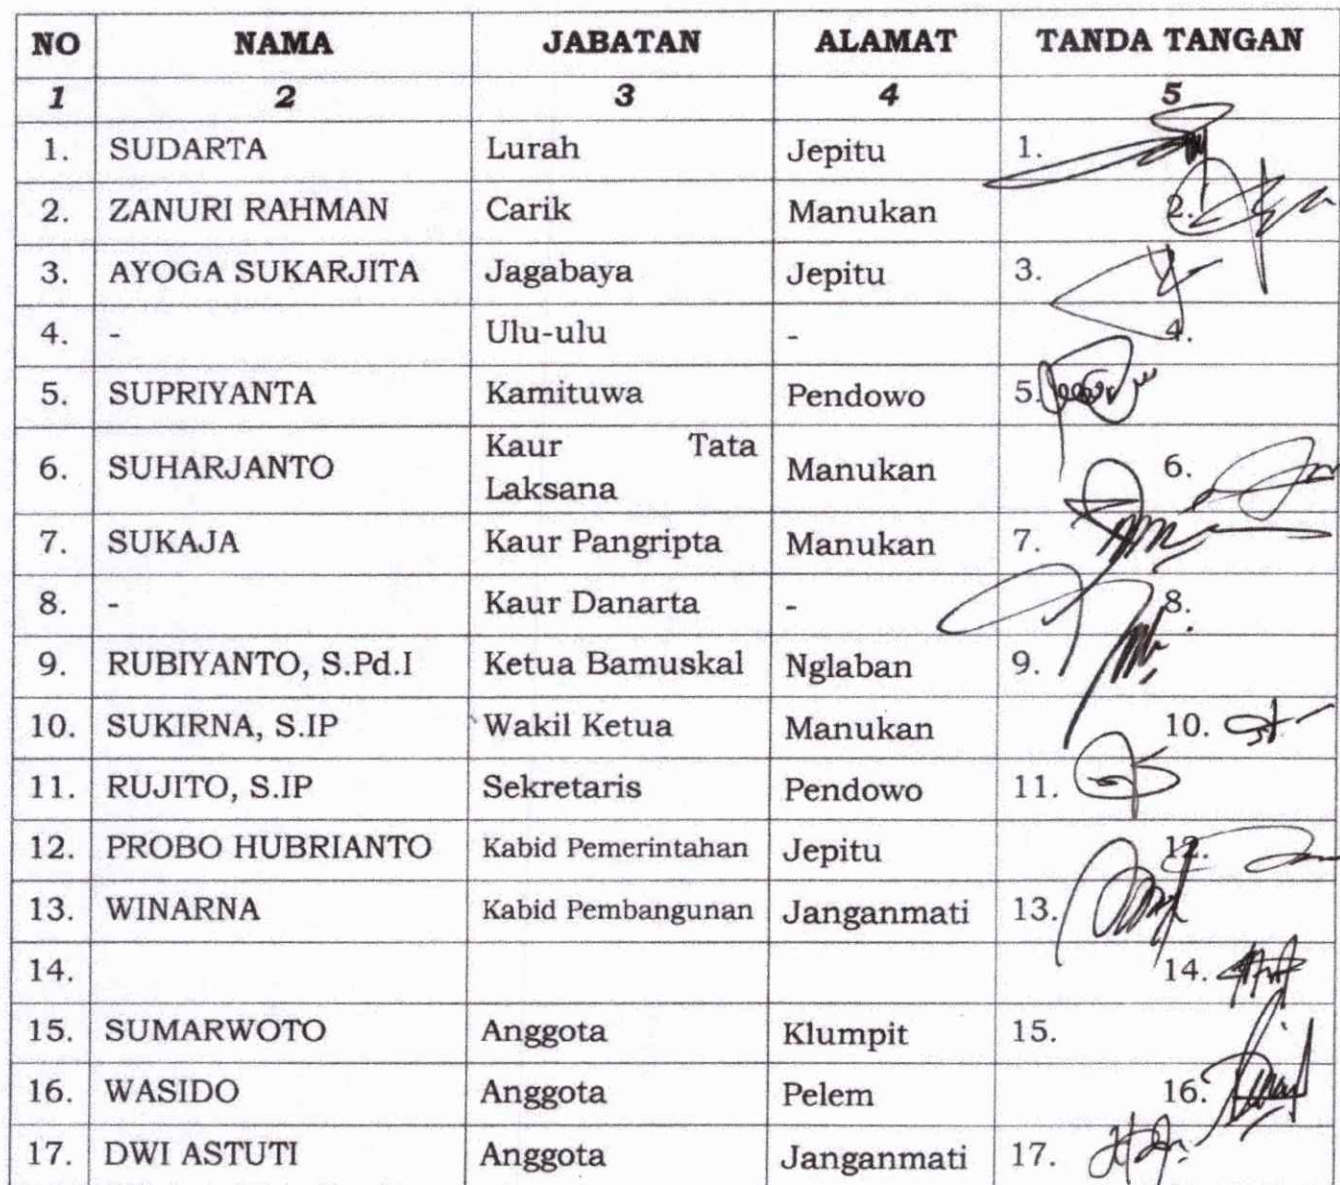 NO NAMA JABATAN ALAMAT TANDA TANGAN
1 2 3 4 5
1. SUDARTA Lurah Jepitu 1.
2. ZANURI RAHMAN Carik Manukan 2.
3. AYOGA SUKARJITA Jagabaya Jepitu 3.
4. - Ulu-ulu - 4.
5. SUPRIYANTA Kamituwa Pendowo 5.
6. SUHARJANTO Kaur Tata Manukan 6.
Laksana
7. SUKAJA Kaur Pangripta Manukan 7.
8. - Kaur Danarta - 8.
9. RUBIYANTO, S.Pd.I Ketua Bamuskal Nglaban 9.
10. SUKIRNA, S.IP Wakil Ketua Manukan 10.
11. RUJITO, S.IP Sekretaris Pendowo 11.
12. PROBO HUBRIANTO Kabid Pemerintahan Jepitu 12.
13. WINARNA Kabid Pembangunan Janganmati 13.
14. 14.
15. SUMARWOTO Anggota Klumpit 15.
16. WASIDO Anggota Pelem 16.
17. DWI ASTUTI Anggota Janganmati 17.